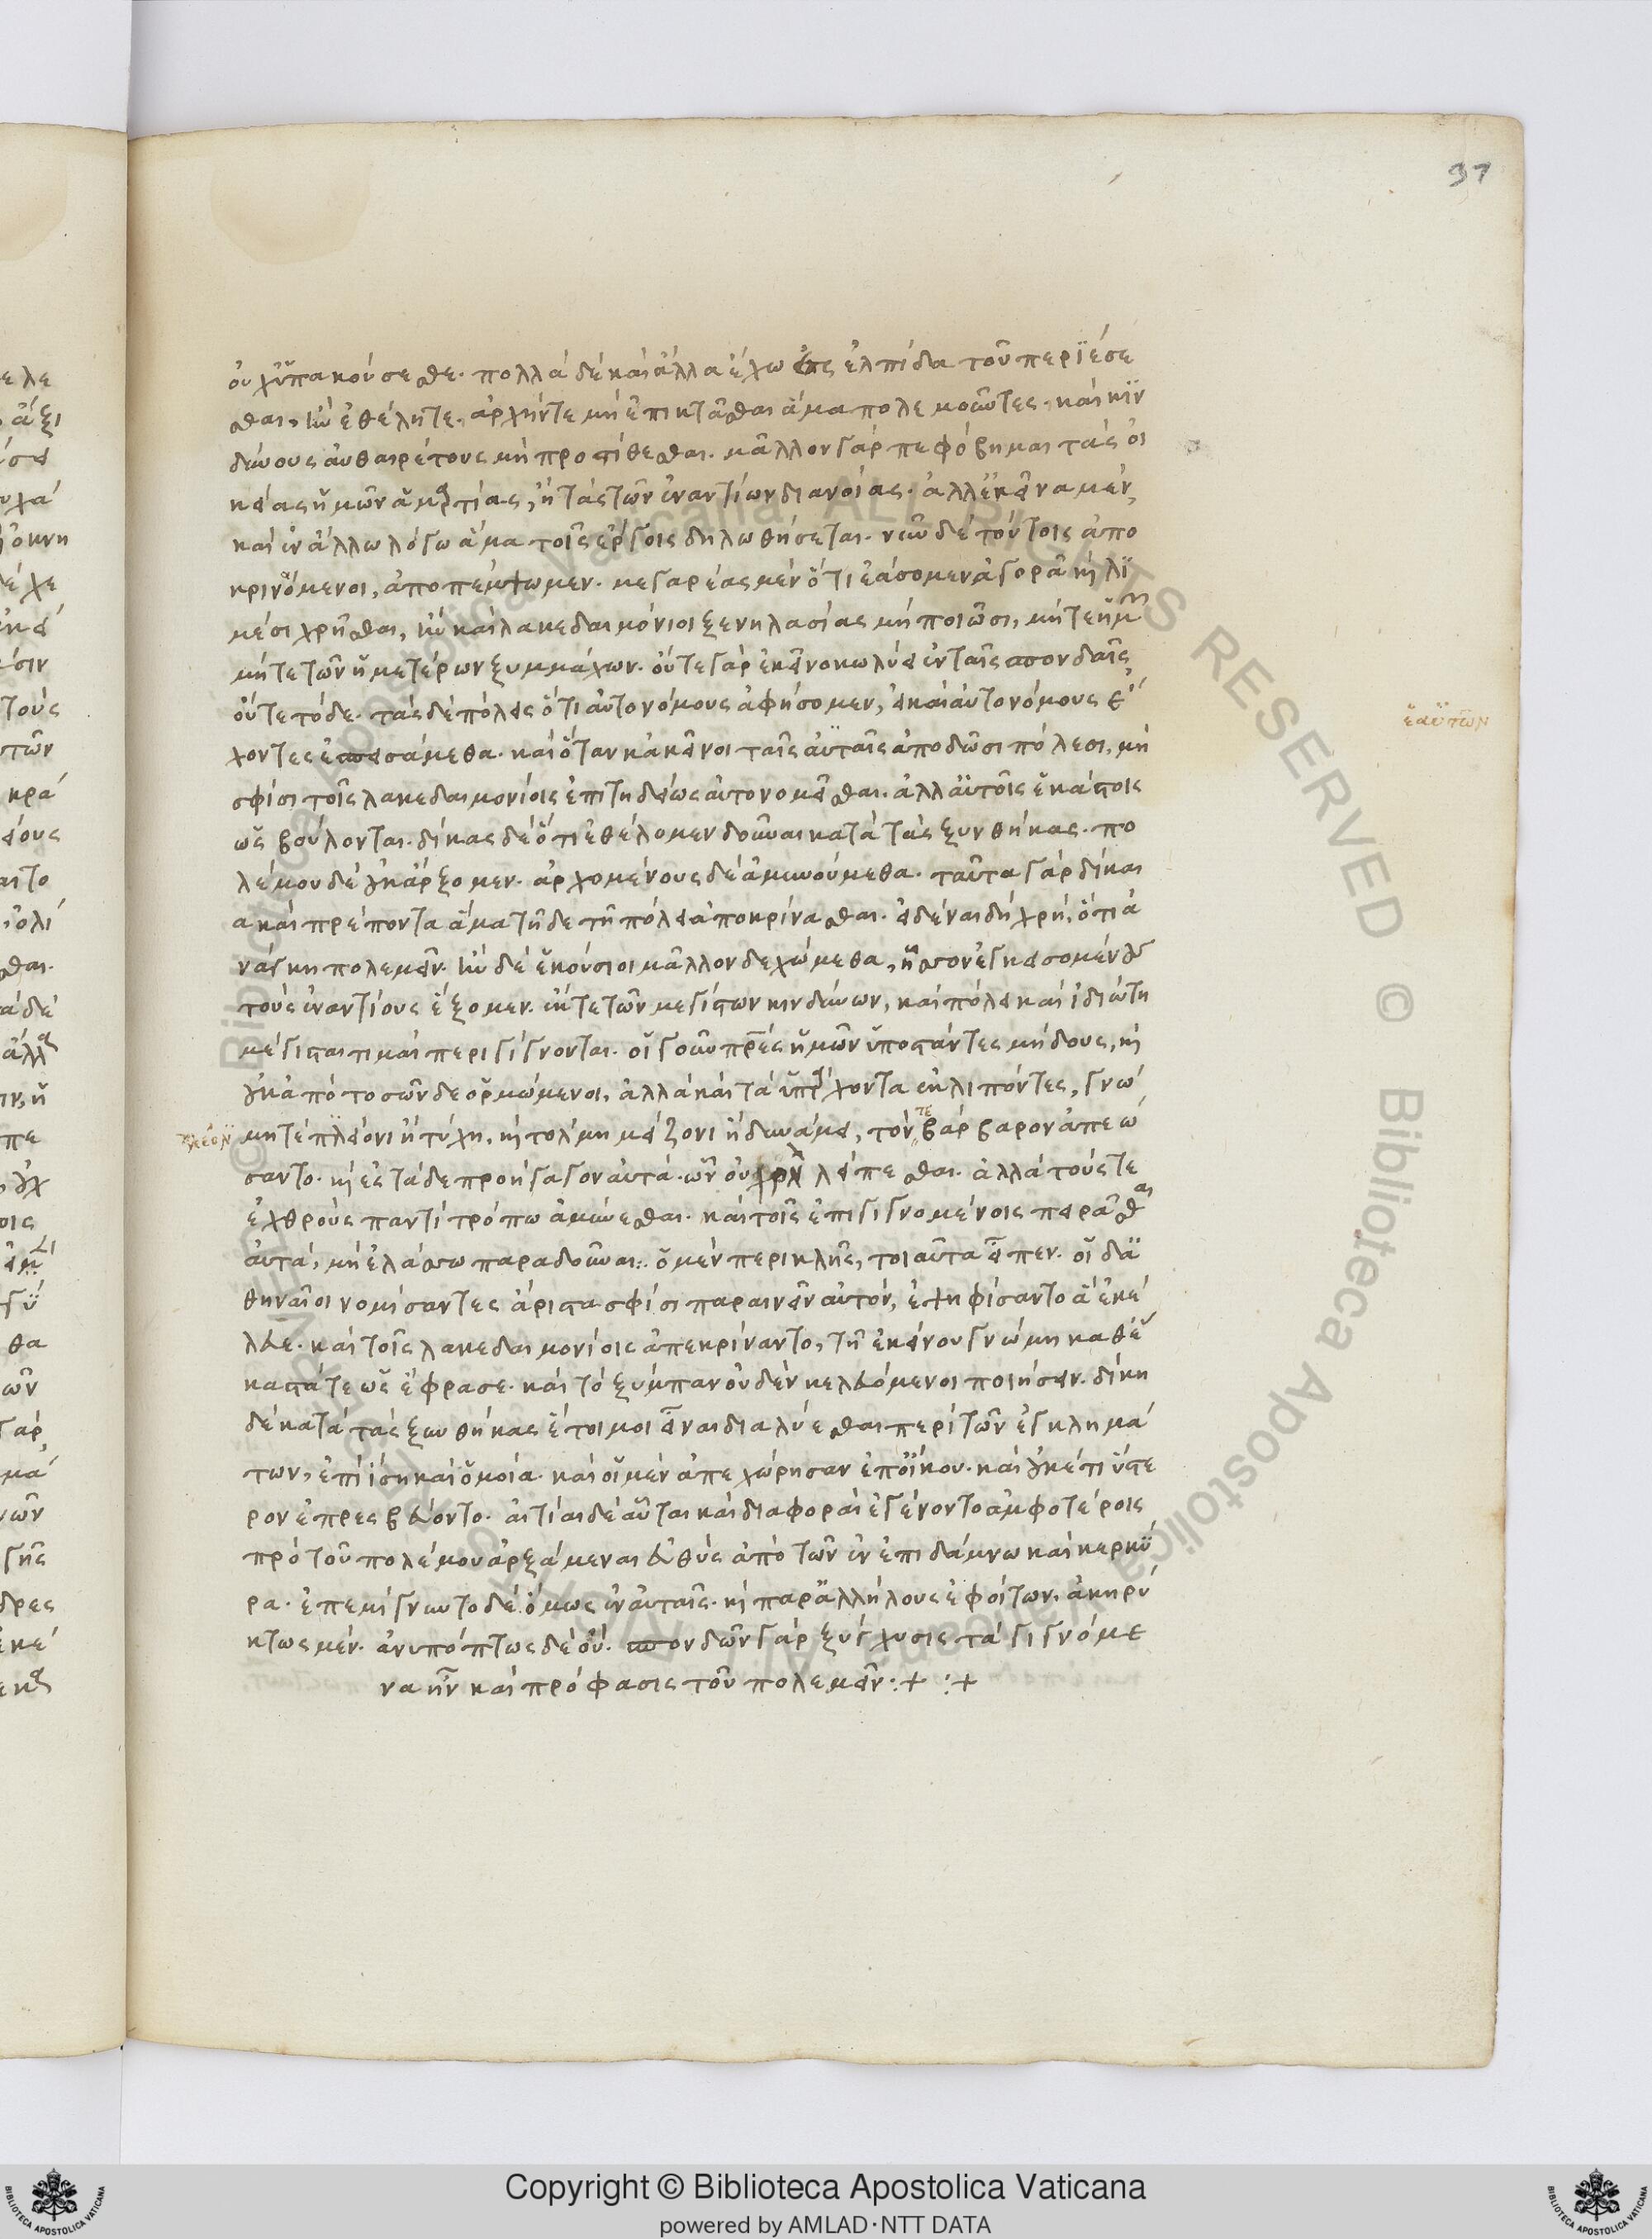 37
οὐχ ὑπακούσεσθε. πολλὰ δὲ καὶ ἄλλα ἔχω ἐς ἐλπίδα τοῦ περιέσε
σθαι, ἢν ἐθέλητε, ἀρχήν τε μὴ ἐπικτᾶσθαι ἅμα πολεμοῦντες, καὶ κιν
δύνους αὐθαιρέτους μὴ προστίθεσθαι. μᾶλλον γὰρ πεφόβημαι τὰς οἰ
κείας ἡμῶν ἁμαρτίας, ἢ τὰς τῶν ἐναντίων διανοίας. ἀλλ' ἐκεῖνα μὲν
καὶ ἐν ἄλλω λόγω ἅμα τοῖς ἔργοις δηλωθήσεται. νῦν δὲ τούτοις ἀπο
κρινόμενοι, ἀποπέμψωμεν. μεγαρέας μὲν ὅτι ἐάσομεν ἀγορᾶ καὶ λι
μέσι χρῆσθαι, ἢν καὶ λακεδαιμόνιοι ξενηλασίας μὴ ποιῶσι, μήτε ἡμῶν
μήτε τῶν ἡμετέρων ξυμμάχων. οὔτε γὰρ ἐκεῖνο κωλύει ἐν ταῖς σπονδαῖς
οὔτε τόδε. τὰς δὲ πόλεις ὅτι αὐτονόμους ἀφήσομεν, εἰ καὶ αὐτονόμους ἔ
ἑαυτῶν
χοντες ἐσπεισάμεθα. καὶ ὅταν κἀκεῖνοι ταῖς αὑταῖς ἀποδῶσι πόλεσι, μὴ
σφίσι τοῖς λακεδαιμονίοις ἐπιτηδείως αὐτονομεῖσθαι. ἀλλ' αὐτοῖς ἑκάστοις
ὡς βούλονται. δίκας δὲ ὅτι ἐθέλομεν δοῦναι κατὰ τὰς ξυνθήκας. πο
λέμου δὲ οὐκ ἄρξομεν. ἀρχομένους δὲ ἀμυνούμεθα. ταῦτα γὰρ δίκαι
α καὶ πρέποντα ἅμα τῆδε τῆ πόλει ἀποκρίνασθαι. εἰδέναι δὴ χρή, ὅτι ἀ
νάγκη πολεμεῖν. ἢν δὲ ἑκούσιοι μᾶλλον δεχώμεθα, ἧσσον ἐγκεισομένους
τοὺς ἐναντίους ἕξομεν. ἔκ τε τῶν μεγίστων κινδύνων, καὶ πόλει καὶ ἰδιώτη
μέγισται τιμαὶ περιγίγνονται. οἱ γοῦν πρες ἡμῶν ὑποστάντες μήδους, καὶ
οὐκ ἀπὸ τοσῶνδε ὁρμώμενοι, ἀλλὰ καὶ τὰ ὑπάρχοντα ἐκλιπόντες, γνώ
πλέον
μη τε πλείονι ἢ τύχη, καὶ τόλμη μείζονι ἢ δυνάμει, τόν τε βάρβαρον ἀπεώ
σαντο. καὶ ἐς τάδε προήγαγον αὐτά. ὧν οὐ χρὴ λείπεσθαι. ἀλλὰ τούς τε
ἐχθροὺς παντὶ τρόπω ἀμύνεσθαι. καὶ τοῖς ἐπιγιγνομένοις πειρᾶσθαι
αὐτά, μὴ ἐλάσσω παραδοῦναι. ὁ μὲν περικλῆς, τοιαῦτα εἶπεν. οἱ δ' ἀ
θηναῖοι νομίσαντες ἄριστα σφίσι παραινεῖν αὐτόν, ἐψηφίσαντο ἃ ἐκέ
λευε. καὶ τοῖς λακεδαιμονίοις ἀπεκρίναντο, τῆ ἐκείνου γνώμη καθ' ἕ
καστά τε ὡς ἔφρασε. καὶ τὸ ξύμπαν οὐδὲν κελευόμενοι ποιήσειν. δίκη
δὲ κατὰ τὰς ξυνθήκας ἕτοιμοι εἶναι διαλύεσθαι περὶ τῶν ἐγκλημά
των, ἐπὶ ἴση καὶ ὁμοία. καὶ οἱ μὲν ἀπεχώρησαν ἐπ' οἴκου. καὶ οὐκέτι ὕστε
ρον ἐπρεσβεύοντο. αἰτίαι δὲ αὗται καὶ διαφοραὶ ἐγένοντο ἀμφοτέροις
πρὸ τοῦ πολέμου ἀρξάμεναι εὐθὺς ἀπὸ τῶν ἐν ἐπιδάμνω καὶ κερκύ
ρα. ἐπεμίγνυντο δὲ ὅμως ἐν αὐταῖς. καὶ παρ' ἀλλήλους ἐφοίτων. ἀκηρύ
κτως μέν. ἀνυπόπτως δὲ οὔ. σπονδῶν γὰρ ξύγχυσις τὰ γιγνόμε
να ἦν καὶ πρόφασις τοῦ πολεμεῖν :+ :+
Copyright © Biblioteca Apostolica Vaticana
powered by AMLAD·NTT DATA